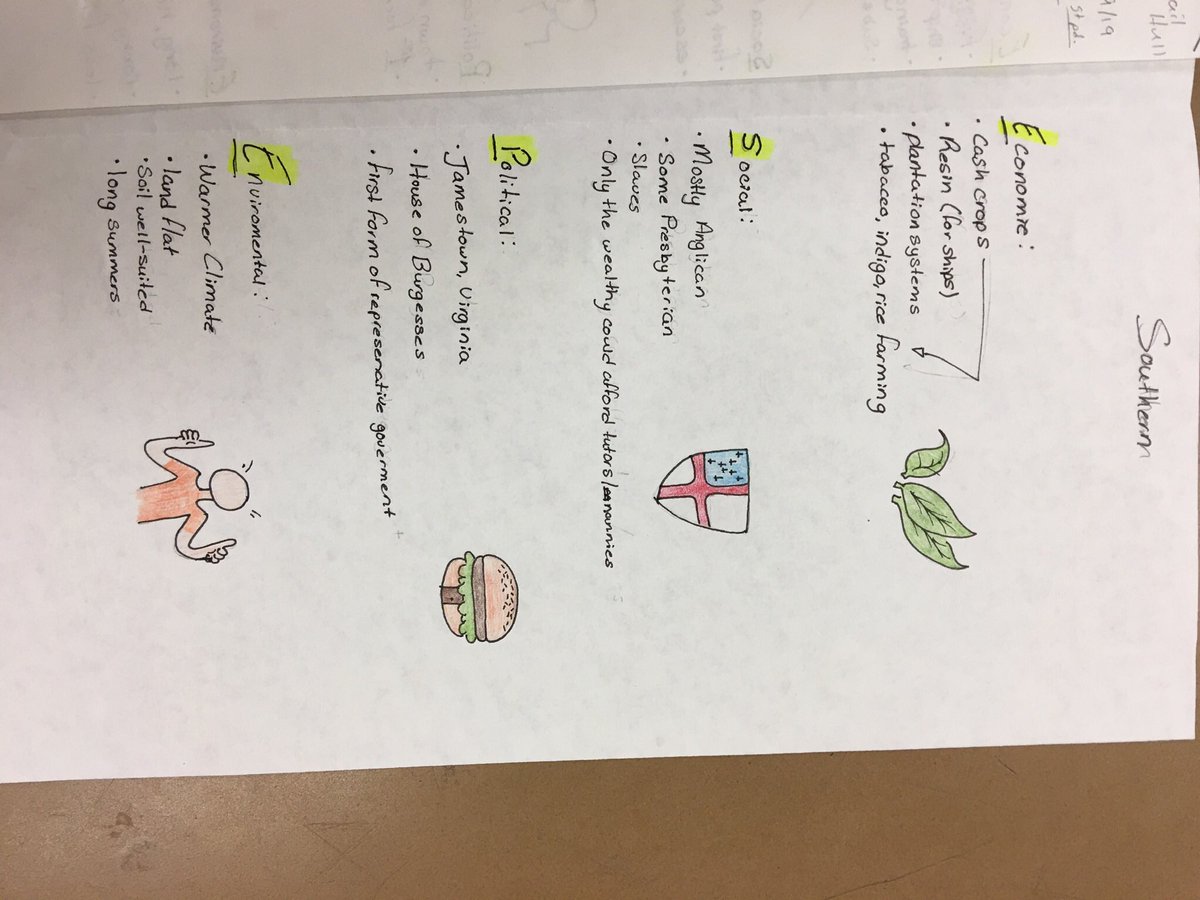 ail
Hull
9/19
st pd.
Southern
Economic:
• Cash crops
• Resin (for ships)
• plantation systems
• tabacco, indigo, rice farming
Social:
• Mostly Anglican
• Some Presbyterian
• Slaves
• Only the wealthy could afford tutors/nannies
Political:
• Jamestown, Virginia
• House of Burgesses
• first form of represenative goverment
Enviromental:
• Warmer Climate
• land flat
• Soil well-suited
• long summers